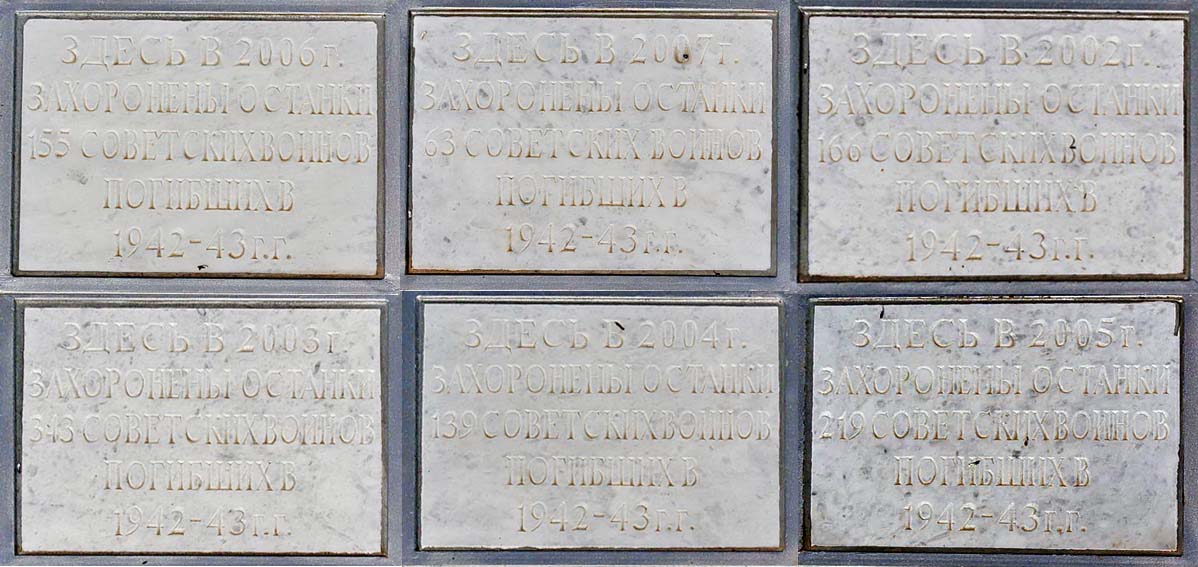 ЗДЕСЬ В 2006 г.
ЗАХОРОНЕНЫ ОСТАНКИ
155 СОВЕТСКИХ ВОИНОВ
ПОГИБШИХ В
1942-43 г.г.
ЗДЕСЬ В 2007 г.
ЗАХОРОНЕНЫ ОСТАНКИ
63 СОВЕТСКИХ ВОИНОВ
ПОГИБШИХ В
1942-43 г.г.
ЗДЕСЬ В 2002 г.
ЗАХОРОНЕНЫ ОСТАНКИ
166 СОВЕТСКИХ ВОИНОВ
ПОГИБШИХ В
1942-43 г.г.
ЗДЕСЬ В 2003 г.
ЗАХОРОНЕНЫ ОСТАНКИ
343 СОВЕТСКИХ ВОИНОВ
ПОГИБШИХ В
1942-43 г.г.
ЗДЕСЬ В 2004 г.
ЗАХОРОНЕНЫ ОСТАНКИ
139 СОВЕТСКИХ ВОИНОВ
ПОГИБШИХ В
1942-43 г.г.
ЗДЕСЬ В 2005 г.
ЗАХОРОНЕНЫ ОСТАНКИ
219 СОВЕТСКИХ ВОИНОВ
ПОГИБШИХ В
1942-43 г.г.